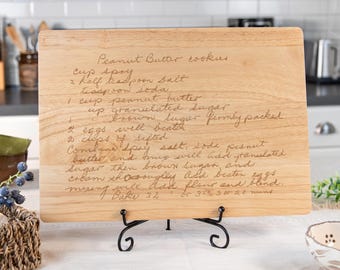 Peanut Butter cookies
cup spry
2 half teaspoon salt
teaspoon soda
1 cup peanut butter
up granulated sugar
1 brown sugar firmly packed
2 eggs well beaten
2 cups sifted
Combine spry, salt, soda peanut
butter and mug well add granulated
sugar then brown sugar and
cream thoroughly add beaten eggs
mixing well Add flour and blend.
Bake 32